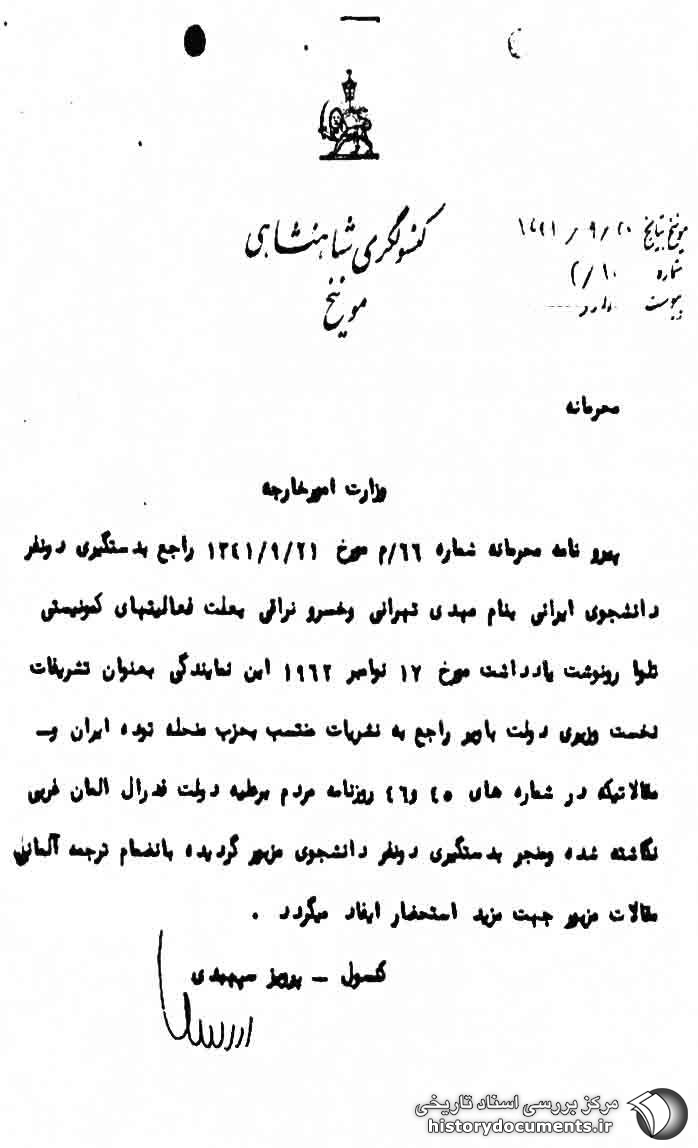 کنسولگری شاهنشاهی
مونیخ
مونیخ بتاریخ ۲۰ / ۹ / ۱۳۴۱
شماره
پیوست دارد
محرمانه
وزارت امورخارجه
پیرو نامه محرمانه شماره ۶۶/م مورخ ۱۳۴۱/۹/۲۱ راجع بدستگیری دونفر
دانشجوی ایرانی بنام مهدی تهرانی وخسرو نراقی بعلت فعالیتهای کمونیستی
تلوا رونوشت یادداشت مورخ ۱۷ نوامبر ۱۹۶۲ این نمایندگی بعنوان تشریفات
نخست وزیری دولت باویر راجع به نشریات منتسب بحزب منحله توده ایران و ــ
مقالاتیکه در شماره های ۴۵ و۴۶ روزنامه مردم برعلیه دولت فدرال المان غربی
نگاشته شده ومنجر بدستگیری دونفر دانشجوی مزبور گردیده بانضمام ترجمه آلمانی
مقالات مزبور جهت مزید استحضار ایفاد میگردد .
کنسول ــ پرویز سپهبدی
مرکز بررسی اسناد تاریخی
historydocuments.ir